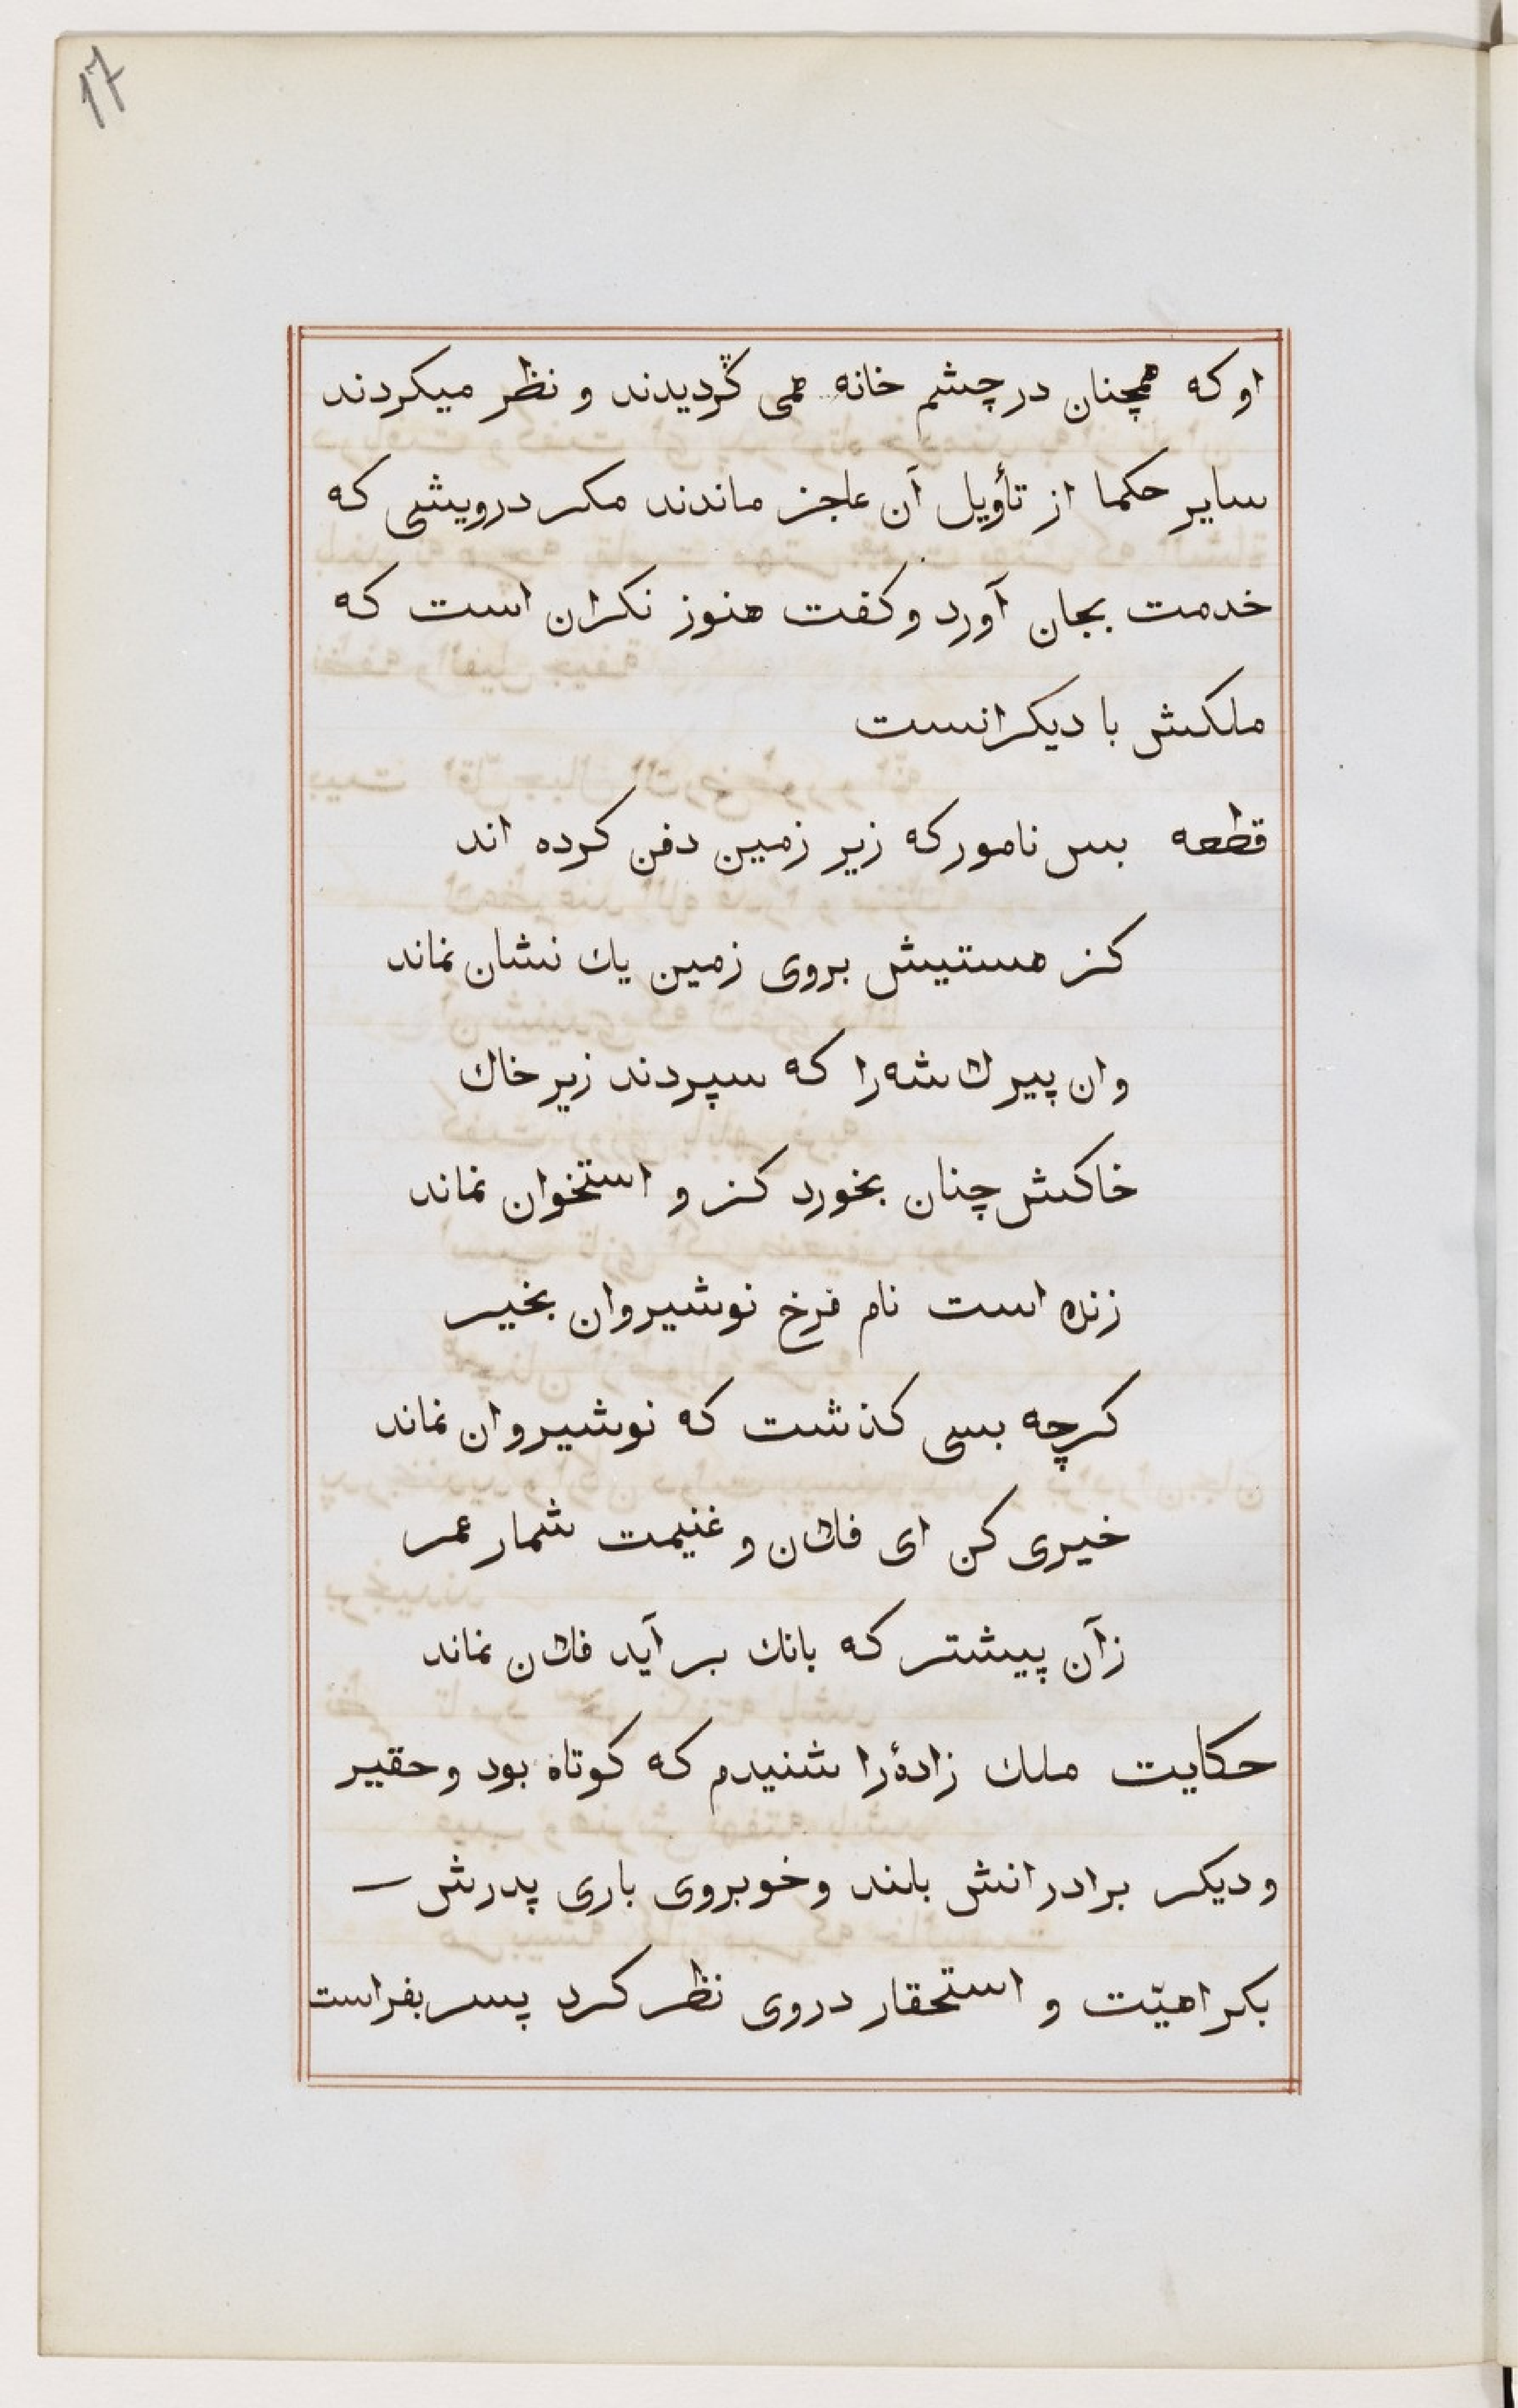 17
او که همچنان در چشم خانه همی گردیدند و نظر میکردند
سایر حکما از تأویل آن عاجز ماندند مکر درویشی که
خدمت بجان آورد و کفت هنوز نکران است که
ملکش با دیکرانست
قطعه بس نامور که زیر زمین دفن کرده اند
کز هستیش بروی زمین یك نشان نماند
وان پیر لاشه را که سپردند زیر خاك
خاکش چنان بخورد کز و استخوان نماند
زنده است نام فرخ نوشیروان بخیر
کرچه بسی کذشت که نوشیروان نماند
خیری کن ای فلان و غنیمت شمار عمر
زآن پیشتر که بانك بر آید فلان نماند
حکایت ملك زادهٔ را شنیدم که کوتاه بود و حقیر
و دیکر برادرانش بلند و خوبروی باری پدرش
بکراهیّت و استحقار در وی نظر کرد پسر بفراست